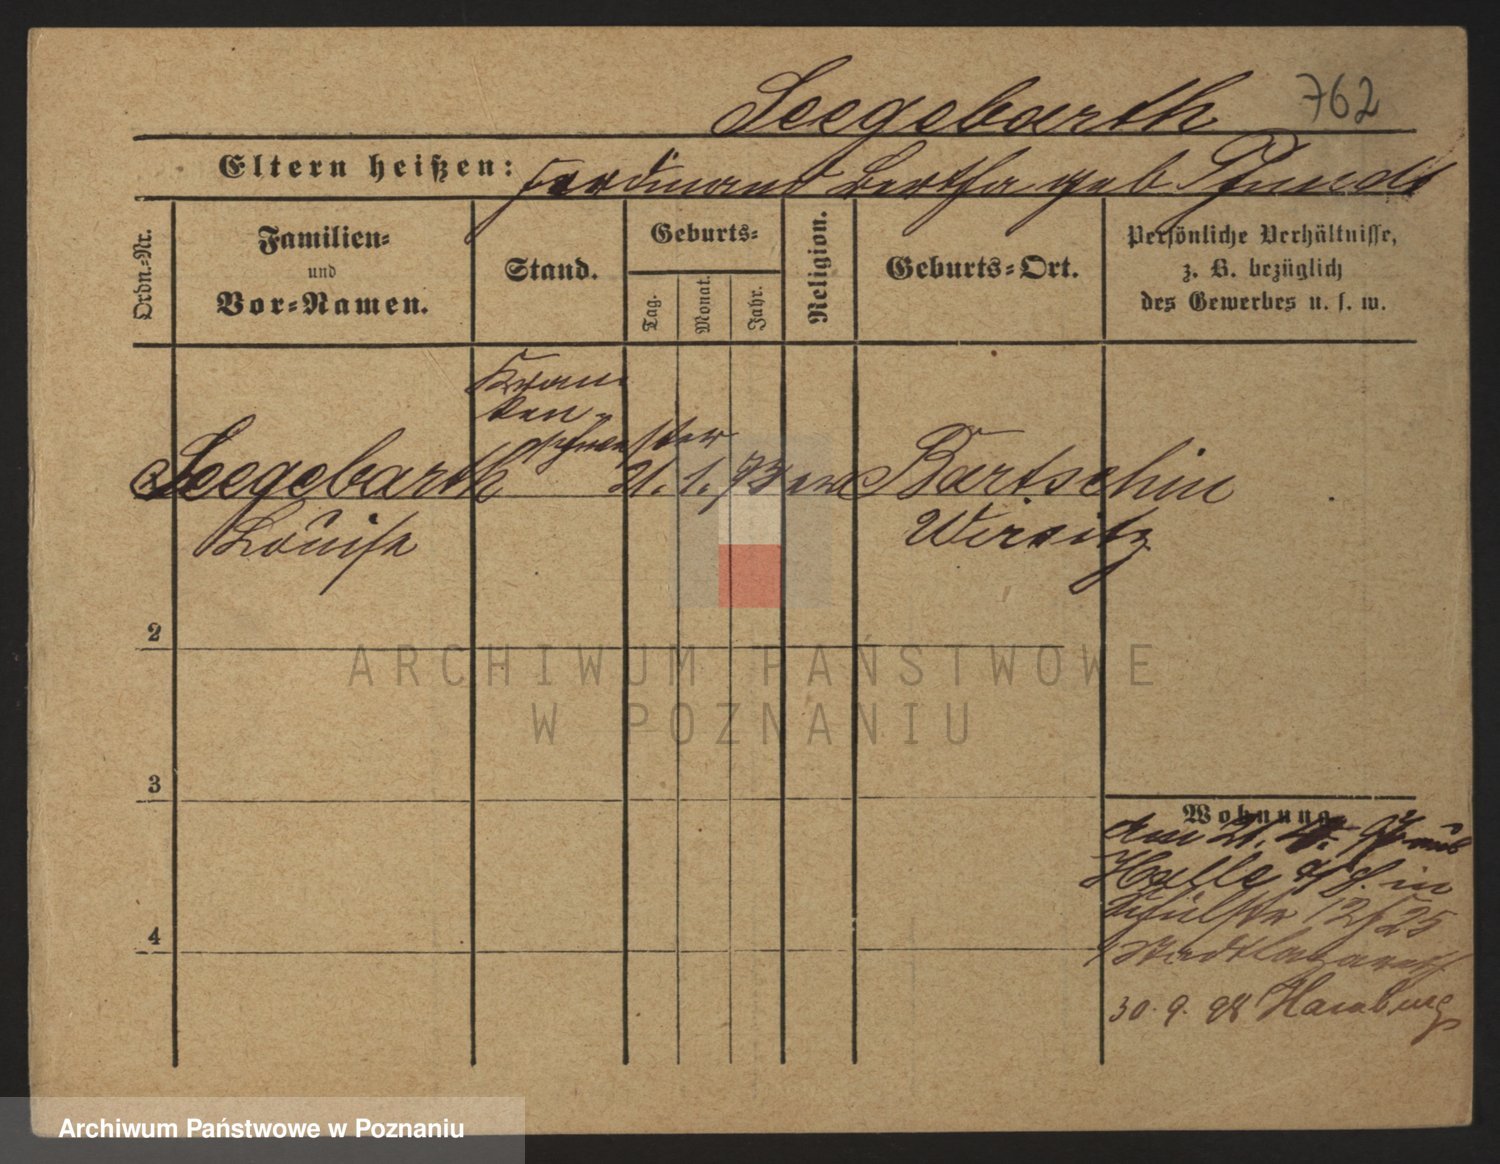 Seegebarth 762
Eltern heißen: Ferdinand Bertha geb Pfundt
Ordn.-Nr.
Familien-
und
Vor-Namen.
Stand.
Geburts-
Tag.
Monat.
Jahr.
Religion.
Geburts-Ort.
Persönliche Verhältnisse,
z. B. bezüglich
des Gewerbes u. s. w.
Kran
ken-
schwester
Seegebarth 21. 1. 73 ev Bartschin
Louise Wirsitz
2
3
4
Wohnung
Am 21. 4. 97 aus
Halle a/S. in
Schulstr 12/25
Stadtlazareth
30. 9. 98 Hamburg
ARCHIWUM PAŃSTWOWE
W POZNANIU
Archiwum Państwowe w Poznaniu